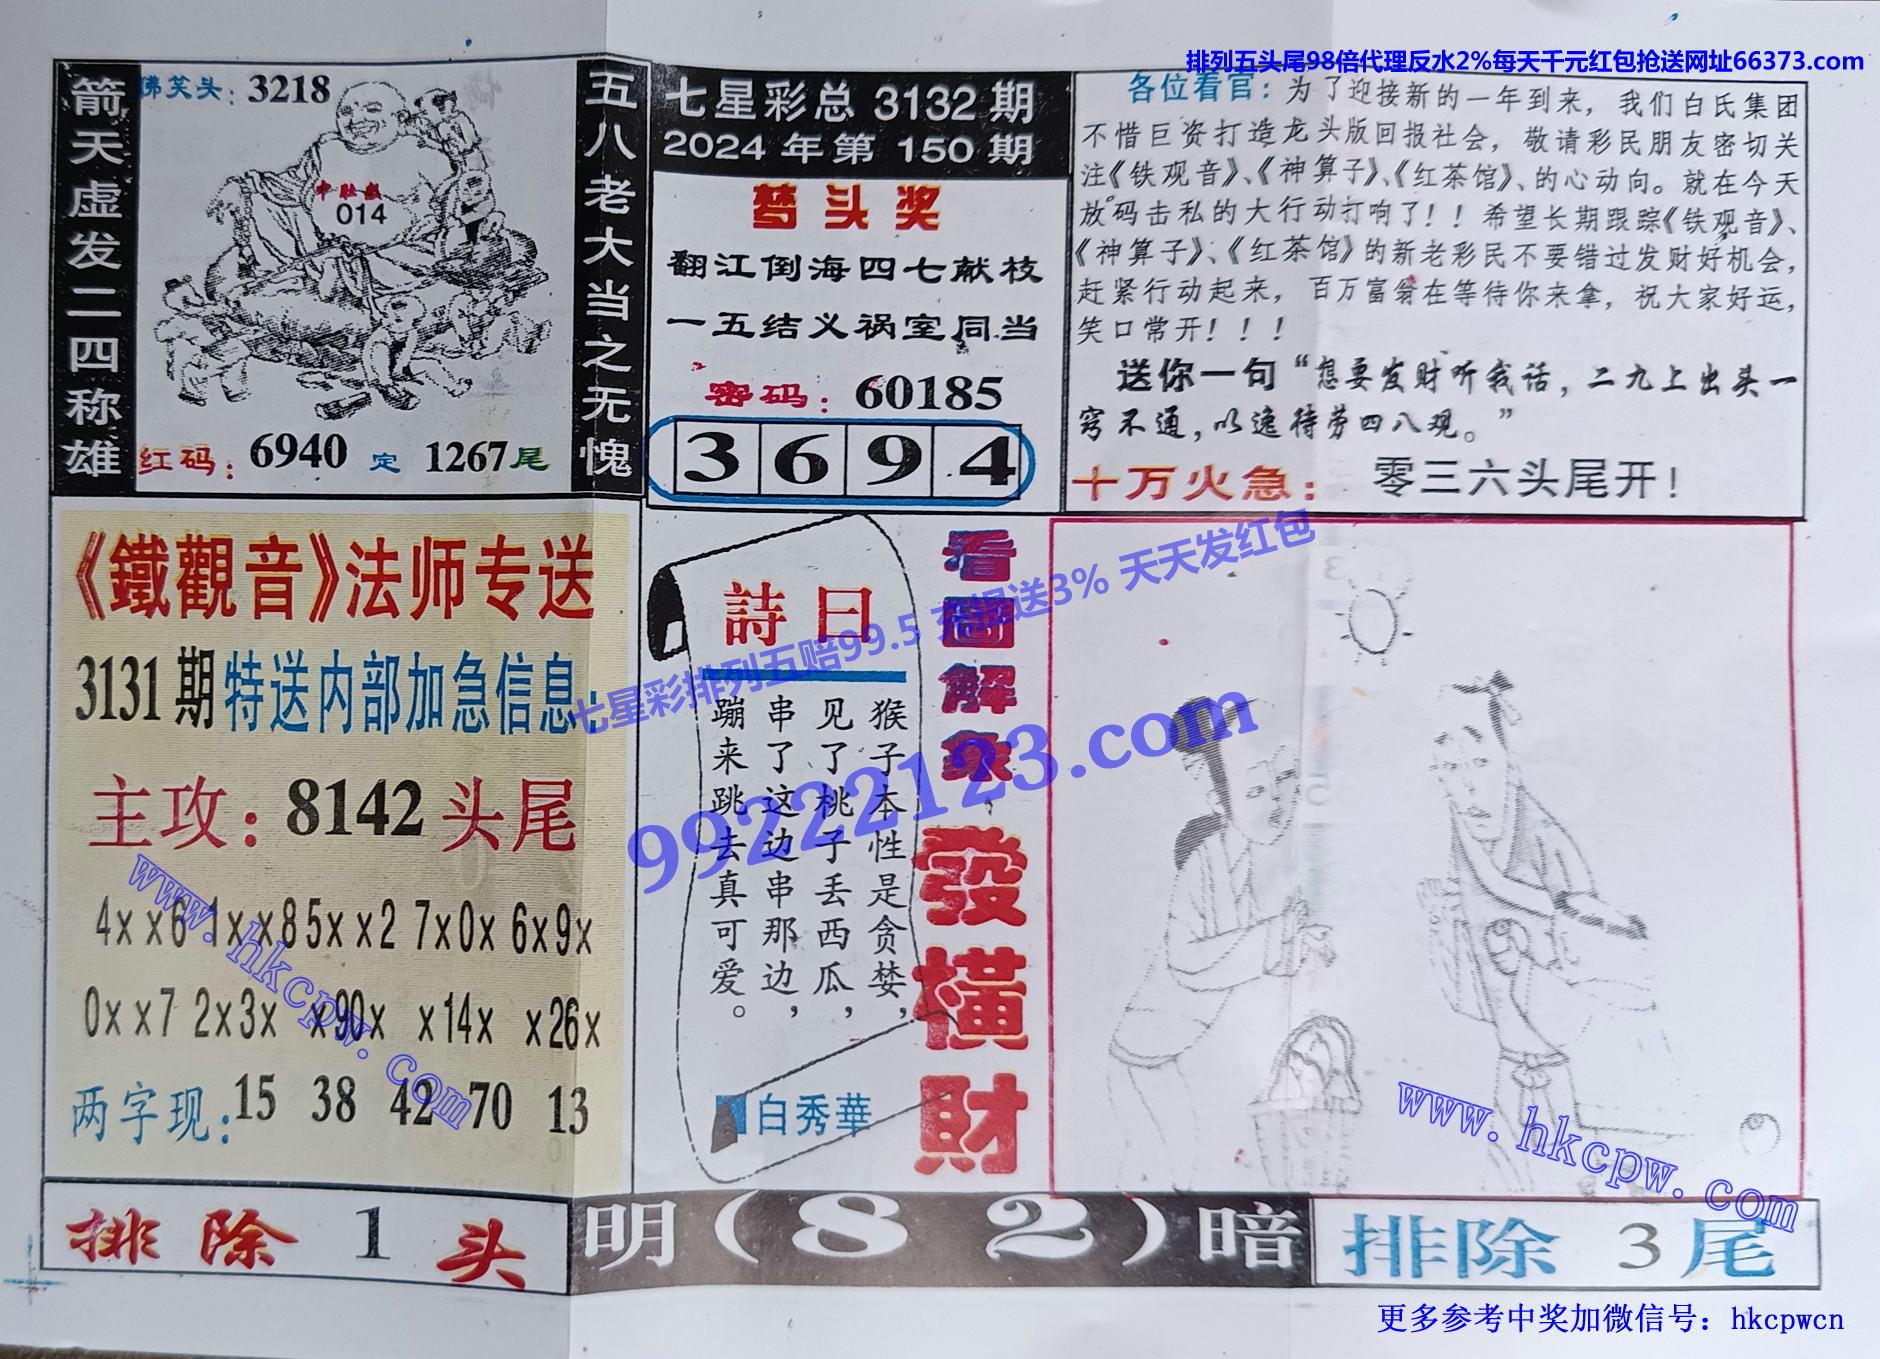 排列五头尾98倍代理反水2%每天千元红包抢送网址66373.com
箭天虚发二四称雄
佛笑头：3218
中肚数
014
红码：6940 定 1267尾
五八老大当之无愧
七星彩总 3132 期
2024 年第 150 期
梦头奖
翻江倒海四七献枝
一五结义祸室同当
密码：60185
3 6 9 4
各位看官：为了迎接新的一年到来，我们白氏集团
不惜巨资打造龙头版回报社会，敬请彩民朋友密切关
注《铁观音》、《神算子》、《红茶馆》、的心动向。就在今天
放码击私的大行动打响了！！希望长期跟踪《铁观音》、
《神算子》、《红茶馆》的新老彩民不要错过发财好机会，
赶紧行动起来，百万富翁在等待你来拿，祝大家好运，
笑口常开！！！
送你一句“想要发财听我话，二九上出头一
窍不通，以逸待劳四八观。”
十万火急：零三六头尾开！
《鐵觀音》法师专送
3131期特送内部加急信息：
主攻：8142头尾
4xx6 1xx8 5xx2 7x0x 6x9x
0xx7 2x3x x90x x14x x26x
两字现：15 38 42 70 13
詩曰
猴子本性是贪婪，
见了桃子丢西瓜，
串了这边串那边，
蹦来跳去真可爱。
白秀華
看圖解象
發橫財
七星彩排列五赔99.5 充提送3% 天天发红包
99222123.com
www.hkcpw.com
www.hkcpw.com
排除 1 头
明（82）暗
排除 3 尾
更多参考中奖加微信号：hkcpwcn